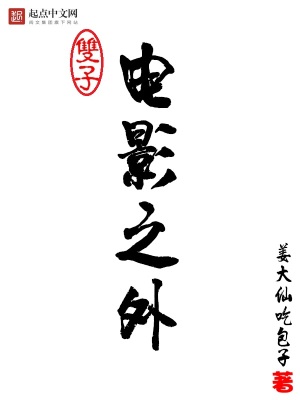 起点中文网
阅文集团旗下网站
雙子
电影之外
姜大仙吃包子 著